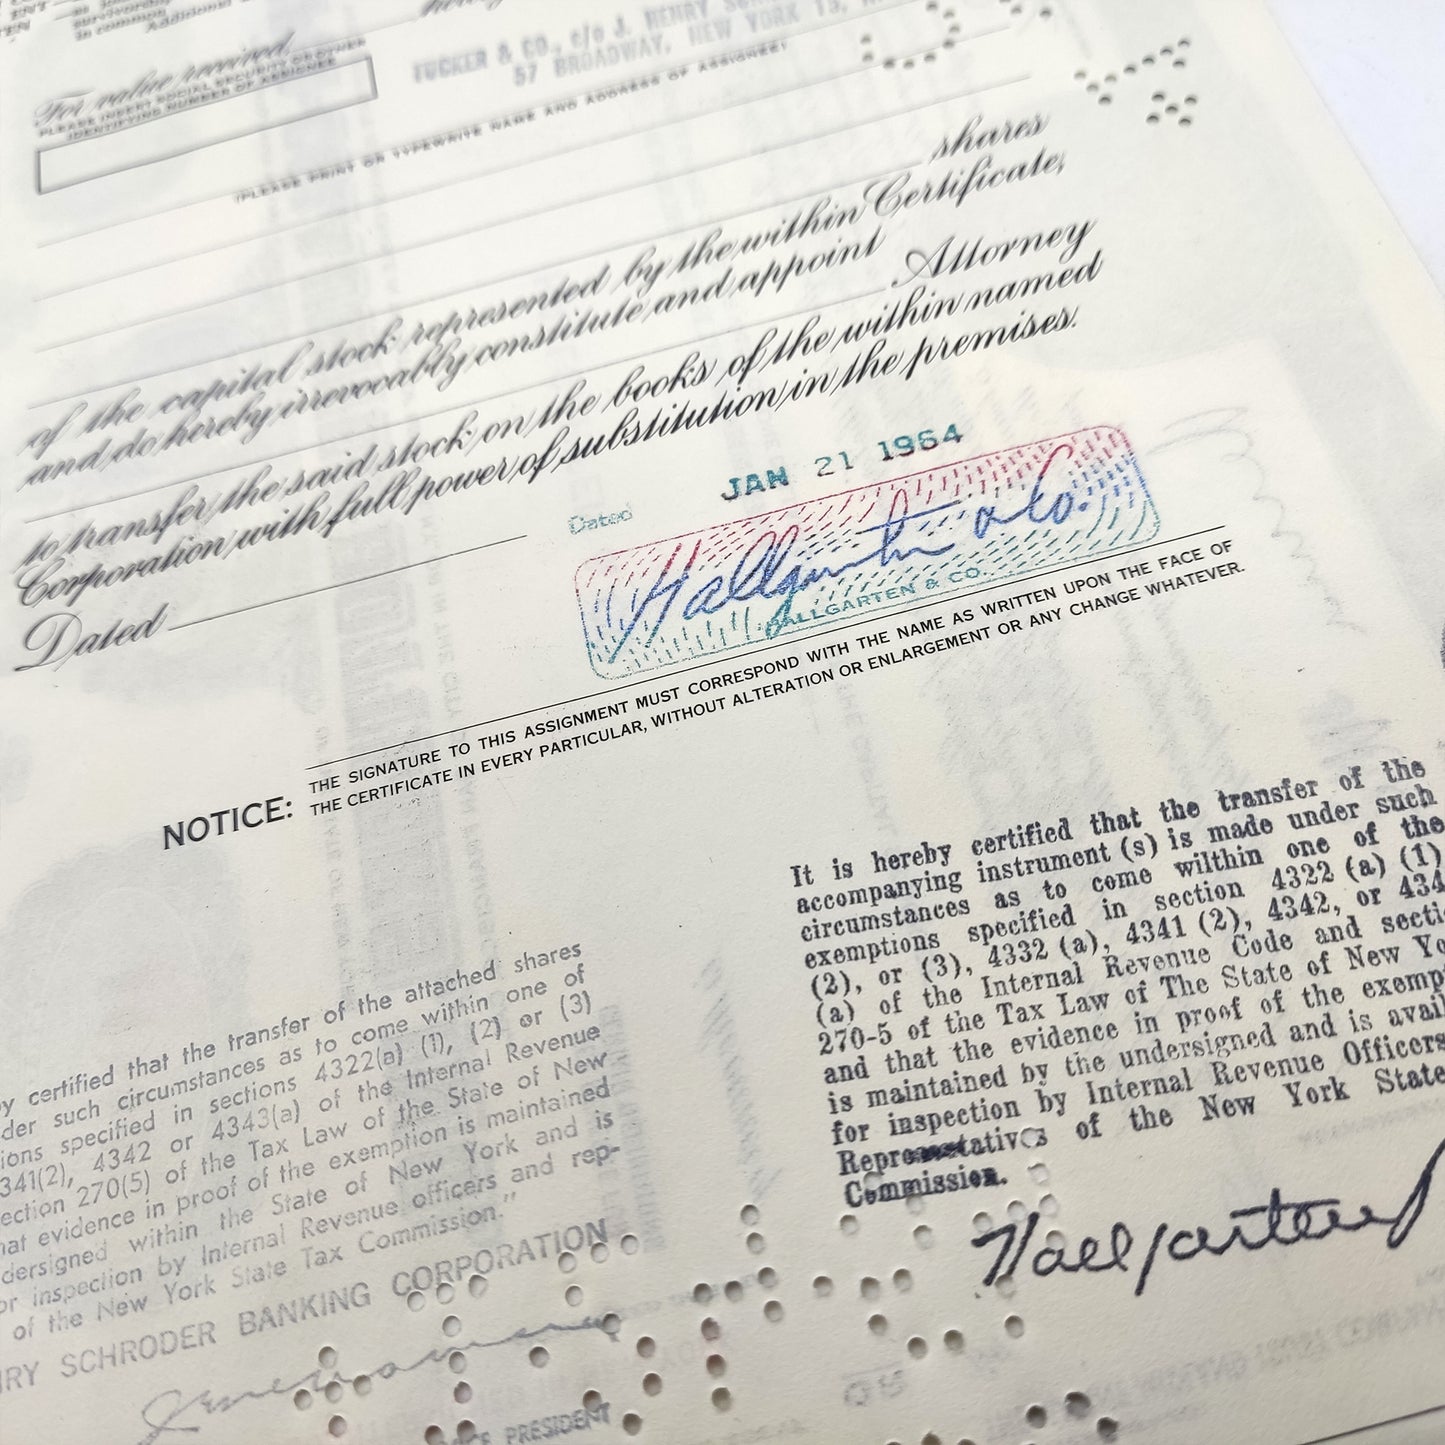 survivorship
in common
Additional
For value received
PLEASE INSERT SOCIAL SECURITY OR OTHER
IDENTIFYING NUMBER OF ASSIGNEE
TUCKER & CO., c/o J. HENRY
57 BROADWAY, NEW YORK 15,
(PLEASE PRINT OR TYPEWRITE NAME AND ADDRESS OF ASSIGNEE)
shares
of the capital stock represented by the within Certificate,
and do hereby irrevocably constitute and appoint
Attorney
to transfer the said stock on the books of the within named
Corporation with full power of substitution in the premises.
Dated
Dated JAN 21 1964
Hallgarten & Co.
HALLGARTEN & CO.
NOTICE: THE SIGNATURE TO THIS ASSIGNMENT MUST CORRESPOND WITH THE NAME AS WRITTEN UPON THE FACE OF
THE CERTIFICATE IN EVERY PARTICULAR, WITHOUT ALTERATION OR ENLARGEMENT OR ANY CHANGE WHATEVER.
It is hereby certified that the transfer of the
accompanying instrument (s) is made under such
circumstances as to come wilthin one of the
exemptions specified in section 4322 (a) (1)
(2), or (3), 4332 (a), 4341 (2), 4342, or 434
(a) of the Internal Revenue Code and secti
270-5 of the Tax Law of The State of New Yo
and that the evidence in proof of the exempt
is maintained by the undersigned and is avail
for inspection by Internal Revenue Officers
Representatives of the New York State
Commission.
Hallgarten
y certified that the transfer of the attached shares
der such circumstances as to come within one of
ions specified in sections 4322(a) (1), (2) or (3)
341(2), 4342 or 4343(a) of the Internal Revenue
ection 270(5) of the Tax Law of the State of New
hat evidence in proof of the exemption is maintained
dersigned within the State of New York and is
or inspection by Internal Revenue officers and rep-
of the New York State Tax Commission."
NRY SCHRODER BANKING CORPORATION
VICE PRESIDENT